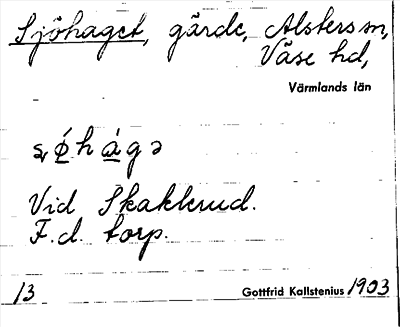 Sjöhaget, gärde, Alsters sn,
Väse hd,
Värmlands län
Vid Skakkrud.
F.d. torp.
13 Gottfrid Kallstenius 1903